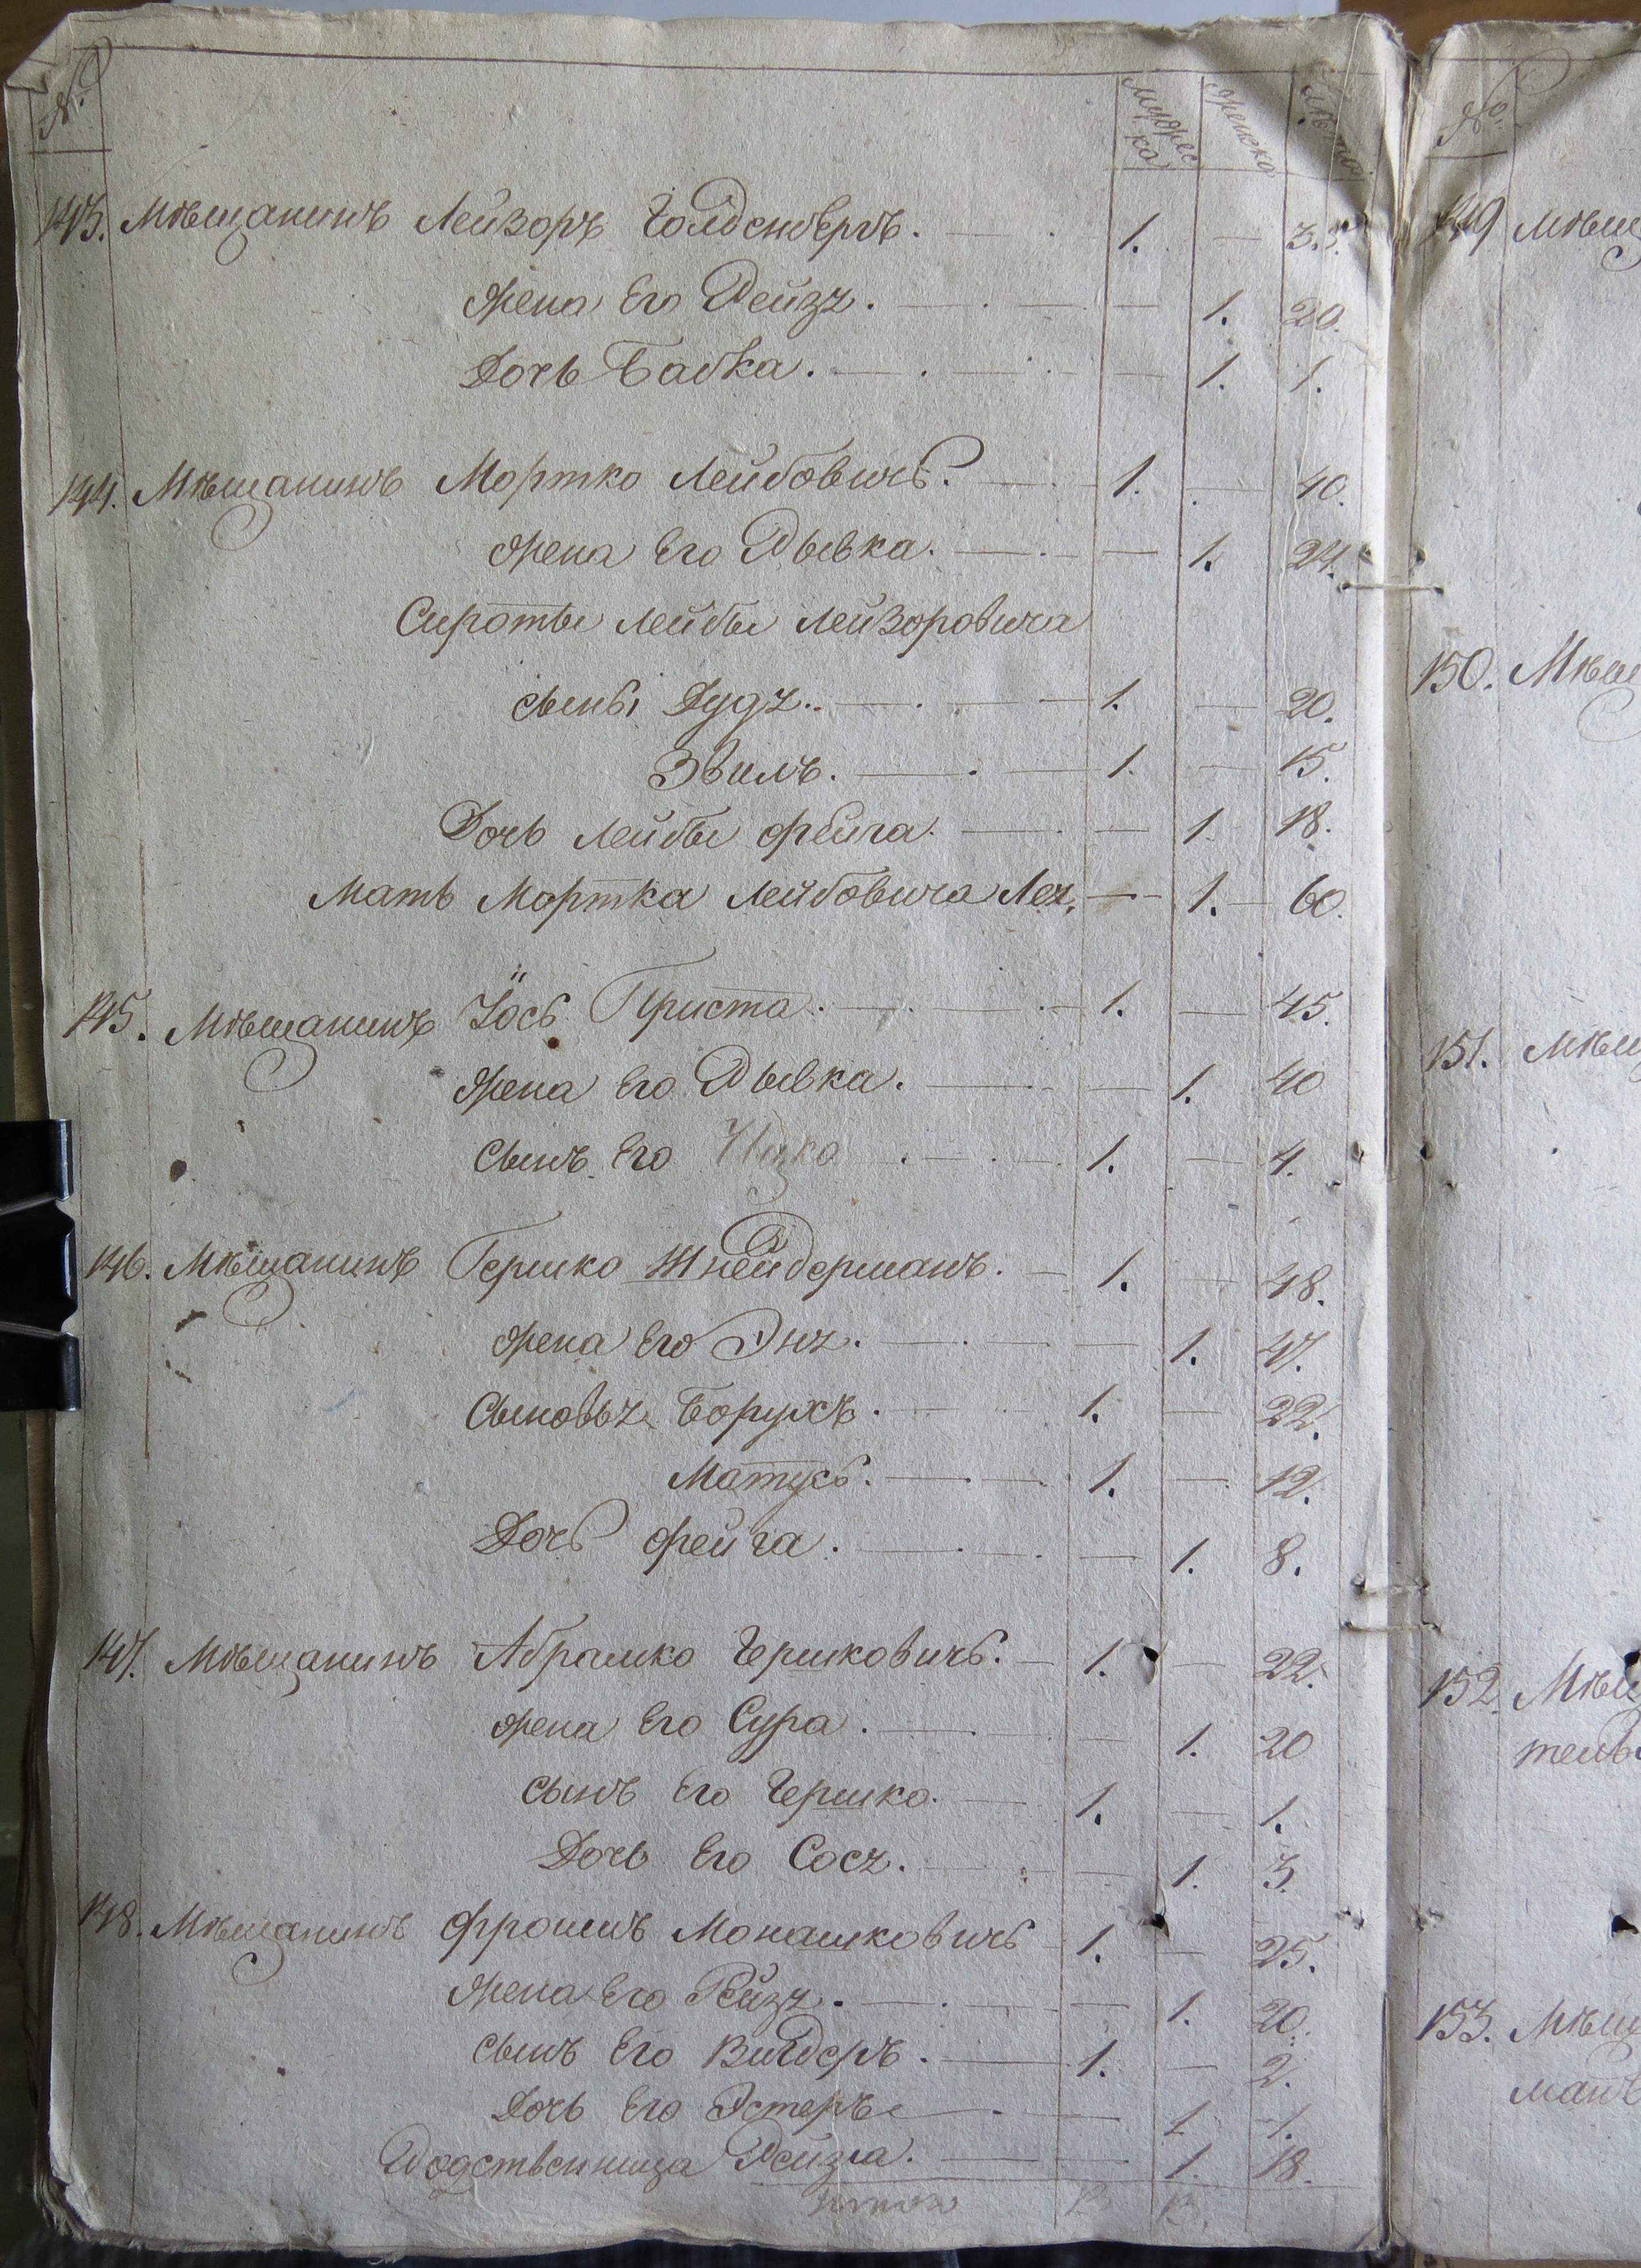 № Мужеска Женска Лѣта
143. Мѣщанинъ Лейзоръ Голденберъ. — 1. — 35.
Жена Его Рейзя. — 1. 20.
Дочь Бабка. — 1. 1.
144. Мѣщанинъ Мортко Лейбовичъ. — 1. — 40.
Жена Его Рывка. — 1. 24.
Сироты Лейбы Лейзоровича
сынъ Дудя. — 1. — 20.
Эвилъ. — 1. — 15.
Дочь Лейбы фейга. — 1. 18.
Мать Мортка Лейбовича Лея. — 1. — 60.
145. Мѣщанинъ Іось Приста. — 1. — 45.
Жена Его Рывка. — 1. 40
Сынъ Его Ицко — 1. — 4.
146. Мѣщанинъ Гершко Шнейдерманъ. — 1. — 48.
Жена Его Эня. — 1. 47.
Сыновья Борухъ. — 1. — 22.
Матусъ. — 1. — 12.
Дочь фейга. — 1. 8.
147. Мѣщанинъ Абрамко Гершковичъ. — 1. — 22.
Жена Его Сура. — 1. 20
сынъ Его Гершко. — 1. — 1.
Дочь Его Сося. — 1. 3.
148. Мѣщанинъ Фроимъ Монашковичъ 1. — 25.
Жена Его Рейзя. — 1. 20.
сынъ Его Вигдеръ. — 1. — 2.
Дочь Его Эстеръ — 1 1.
Родственница Рейзя. — 1. 18.
№
149 Мѣщ
150. Мѣщ
151. Мѣщ
152. Мѣщ
тель
153. Мѣщ
манъ